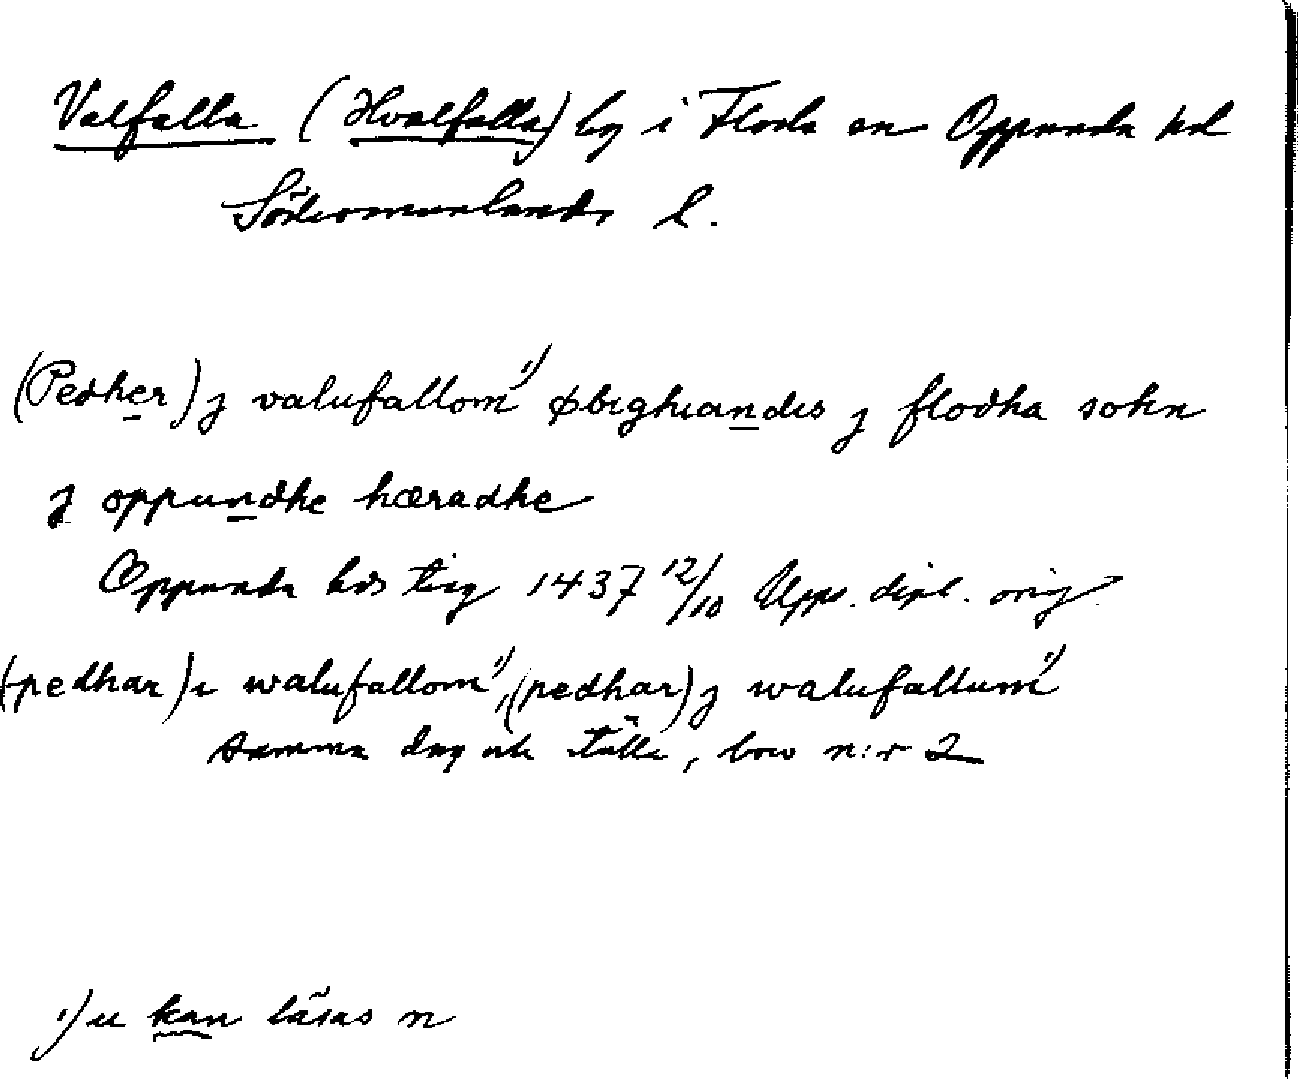 Valfalla (Hvalfalla) by i Floda sn Oppunda hd
Södermanlands l.
(Pedher) j valufallom 1) øbighiandis j flodha sokn
j oppundhe hæradhe
Oppunda hds ting 1437 12/10 Upps. dipl. orig.
(pedhar) i walufallom 1), (pedhar) j walufallum 1)
samma dag och ställe, brev n:r 2
1) u kan läsas n